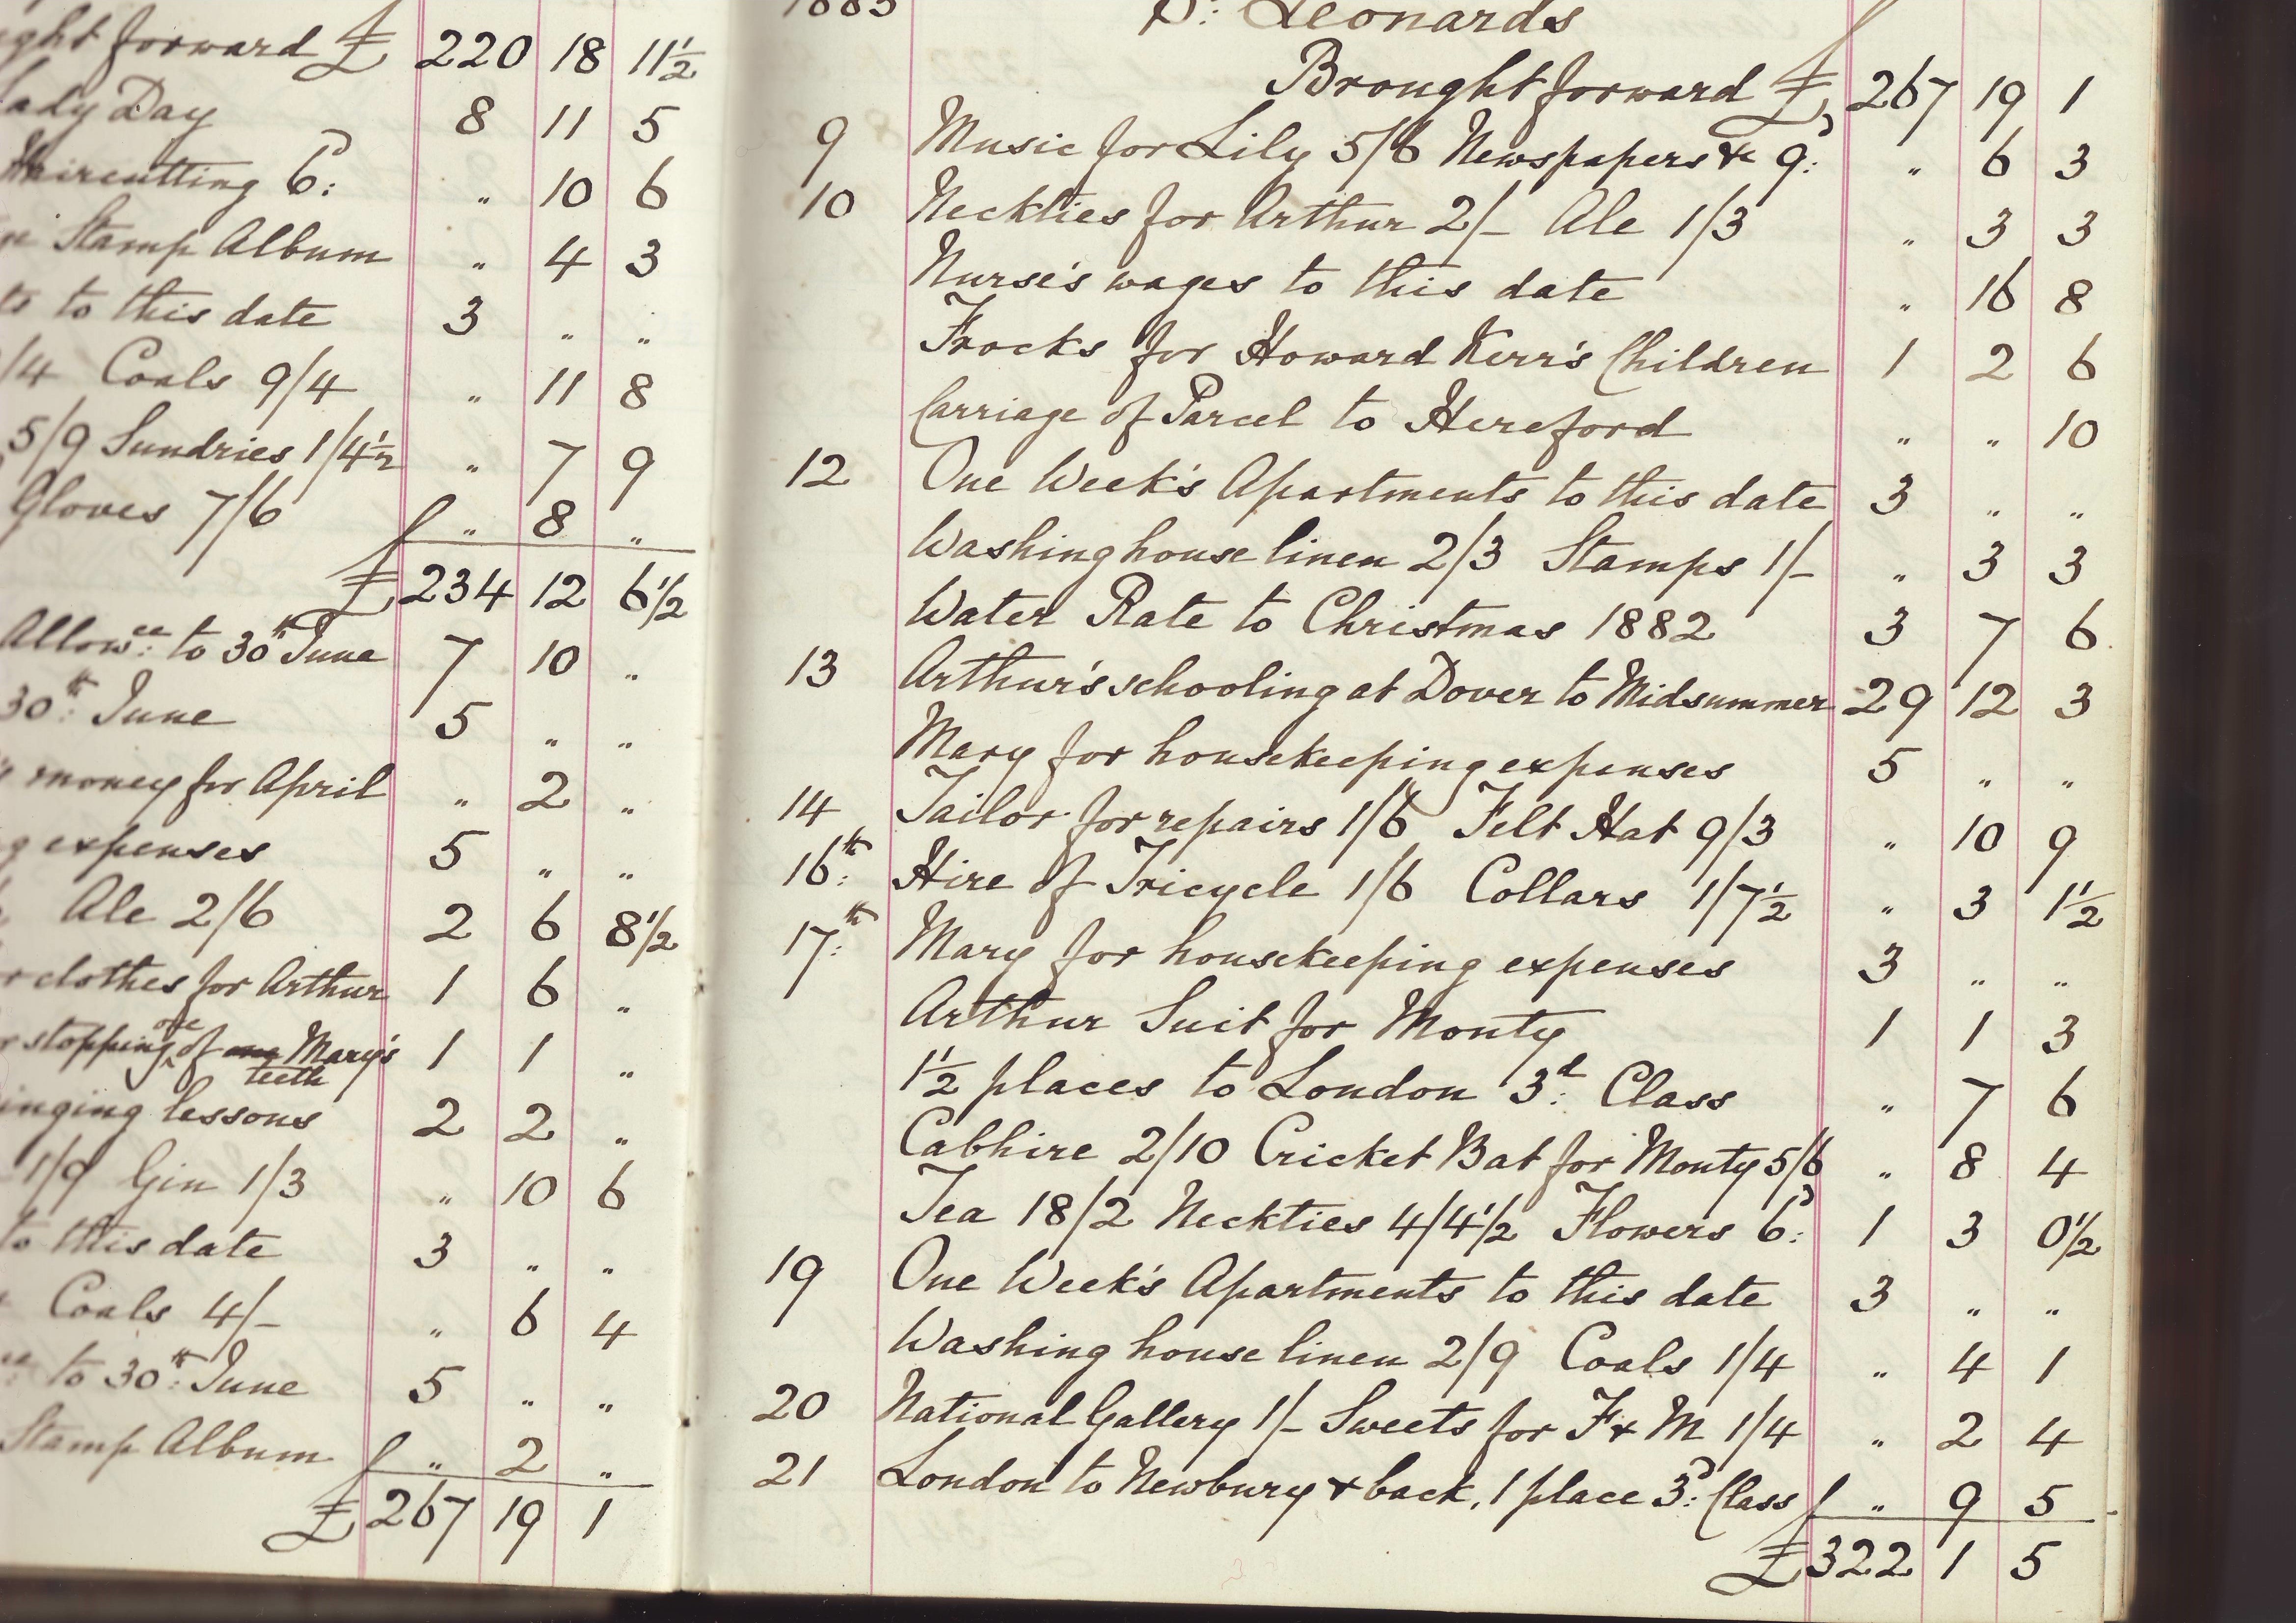 forward £ 220 18 11½
Lady Day 8 11 5
Haircutting 6d: " 10 6
Stamp Album " 4 3
to this date 3 " "
/4 Coals 9/4 " 11 8
5/9 Sundries 1/4½ " 7 9
Gloves 7/6 " 8 "
£ 234 12 6½
Allowce: to 30th June 7 10 "
30th: June 5 " "
money for April " 2 "
expenses 5 " "
Ale 2/6 2 6 8½
clothes for Arthur 1 6 "
stopping one of Mary's teeth 1 1 "
lessons 2 2 "
1/9 Gin 1/3 " 10 6
to this date 3 " "
Coals 4/- " 6 4
to 30th: June 5 " "
Stamp Album " 2 "
£ 267 19 1
1883 St: Leonards
Brought forward £ 267 19 1
9 Music for Lily 5/6 Newspapers &c 9d: " 6 3
10 Neckties for Arthur 2/- Ale 1/3 " 3 3
Nurse's wages to this date " 16 8
Frocks for Howard Kerr's Children 1 2 6
Carriage of Parcel to Hereford " " 10
12 One Week's Apartments to this date 3 " "
Washing house linen 2/3 Stamps 1/- " 3 3
Water Rate to Christmas 1882 3 7 6
13 Arthur's schooling at Dover to Midsummer 29 12 3
Mary for housekeeping expenses 5 " "
14 Tailor for repairs 1/6 Felt Hat 9/3 " 10 9
16th: Hire of Tricycle 1/6 Collars 1/7½ " 3 1½
17th: Mary for housekeeping expenses 3 " "
Arthur Suit for Monty 1 1 3
1½ places to London 3d: Class " 7 6
Cabhire 2/10 Cricket Bat for Monty 5/6 " 8 4
Tea 18/2 Neckties 4/4½ Flowers 6d: 1 3 0½
19 One Week's Apartments to this date 3 " "
Washing house linen 2/9 Coals 1/4 " 4 1
20 National Gallery 1/- Sweets for F & M 1/4 " 2 4
21 London to Newbury & back, 1 place 3d: Class " 9 5
£ 322 1 5